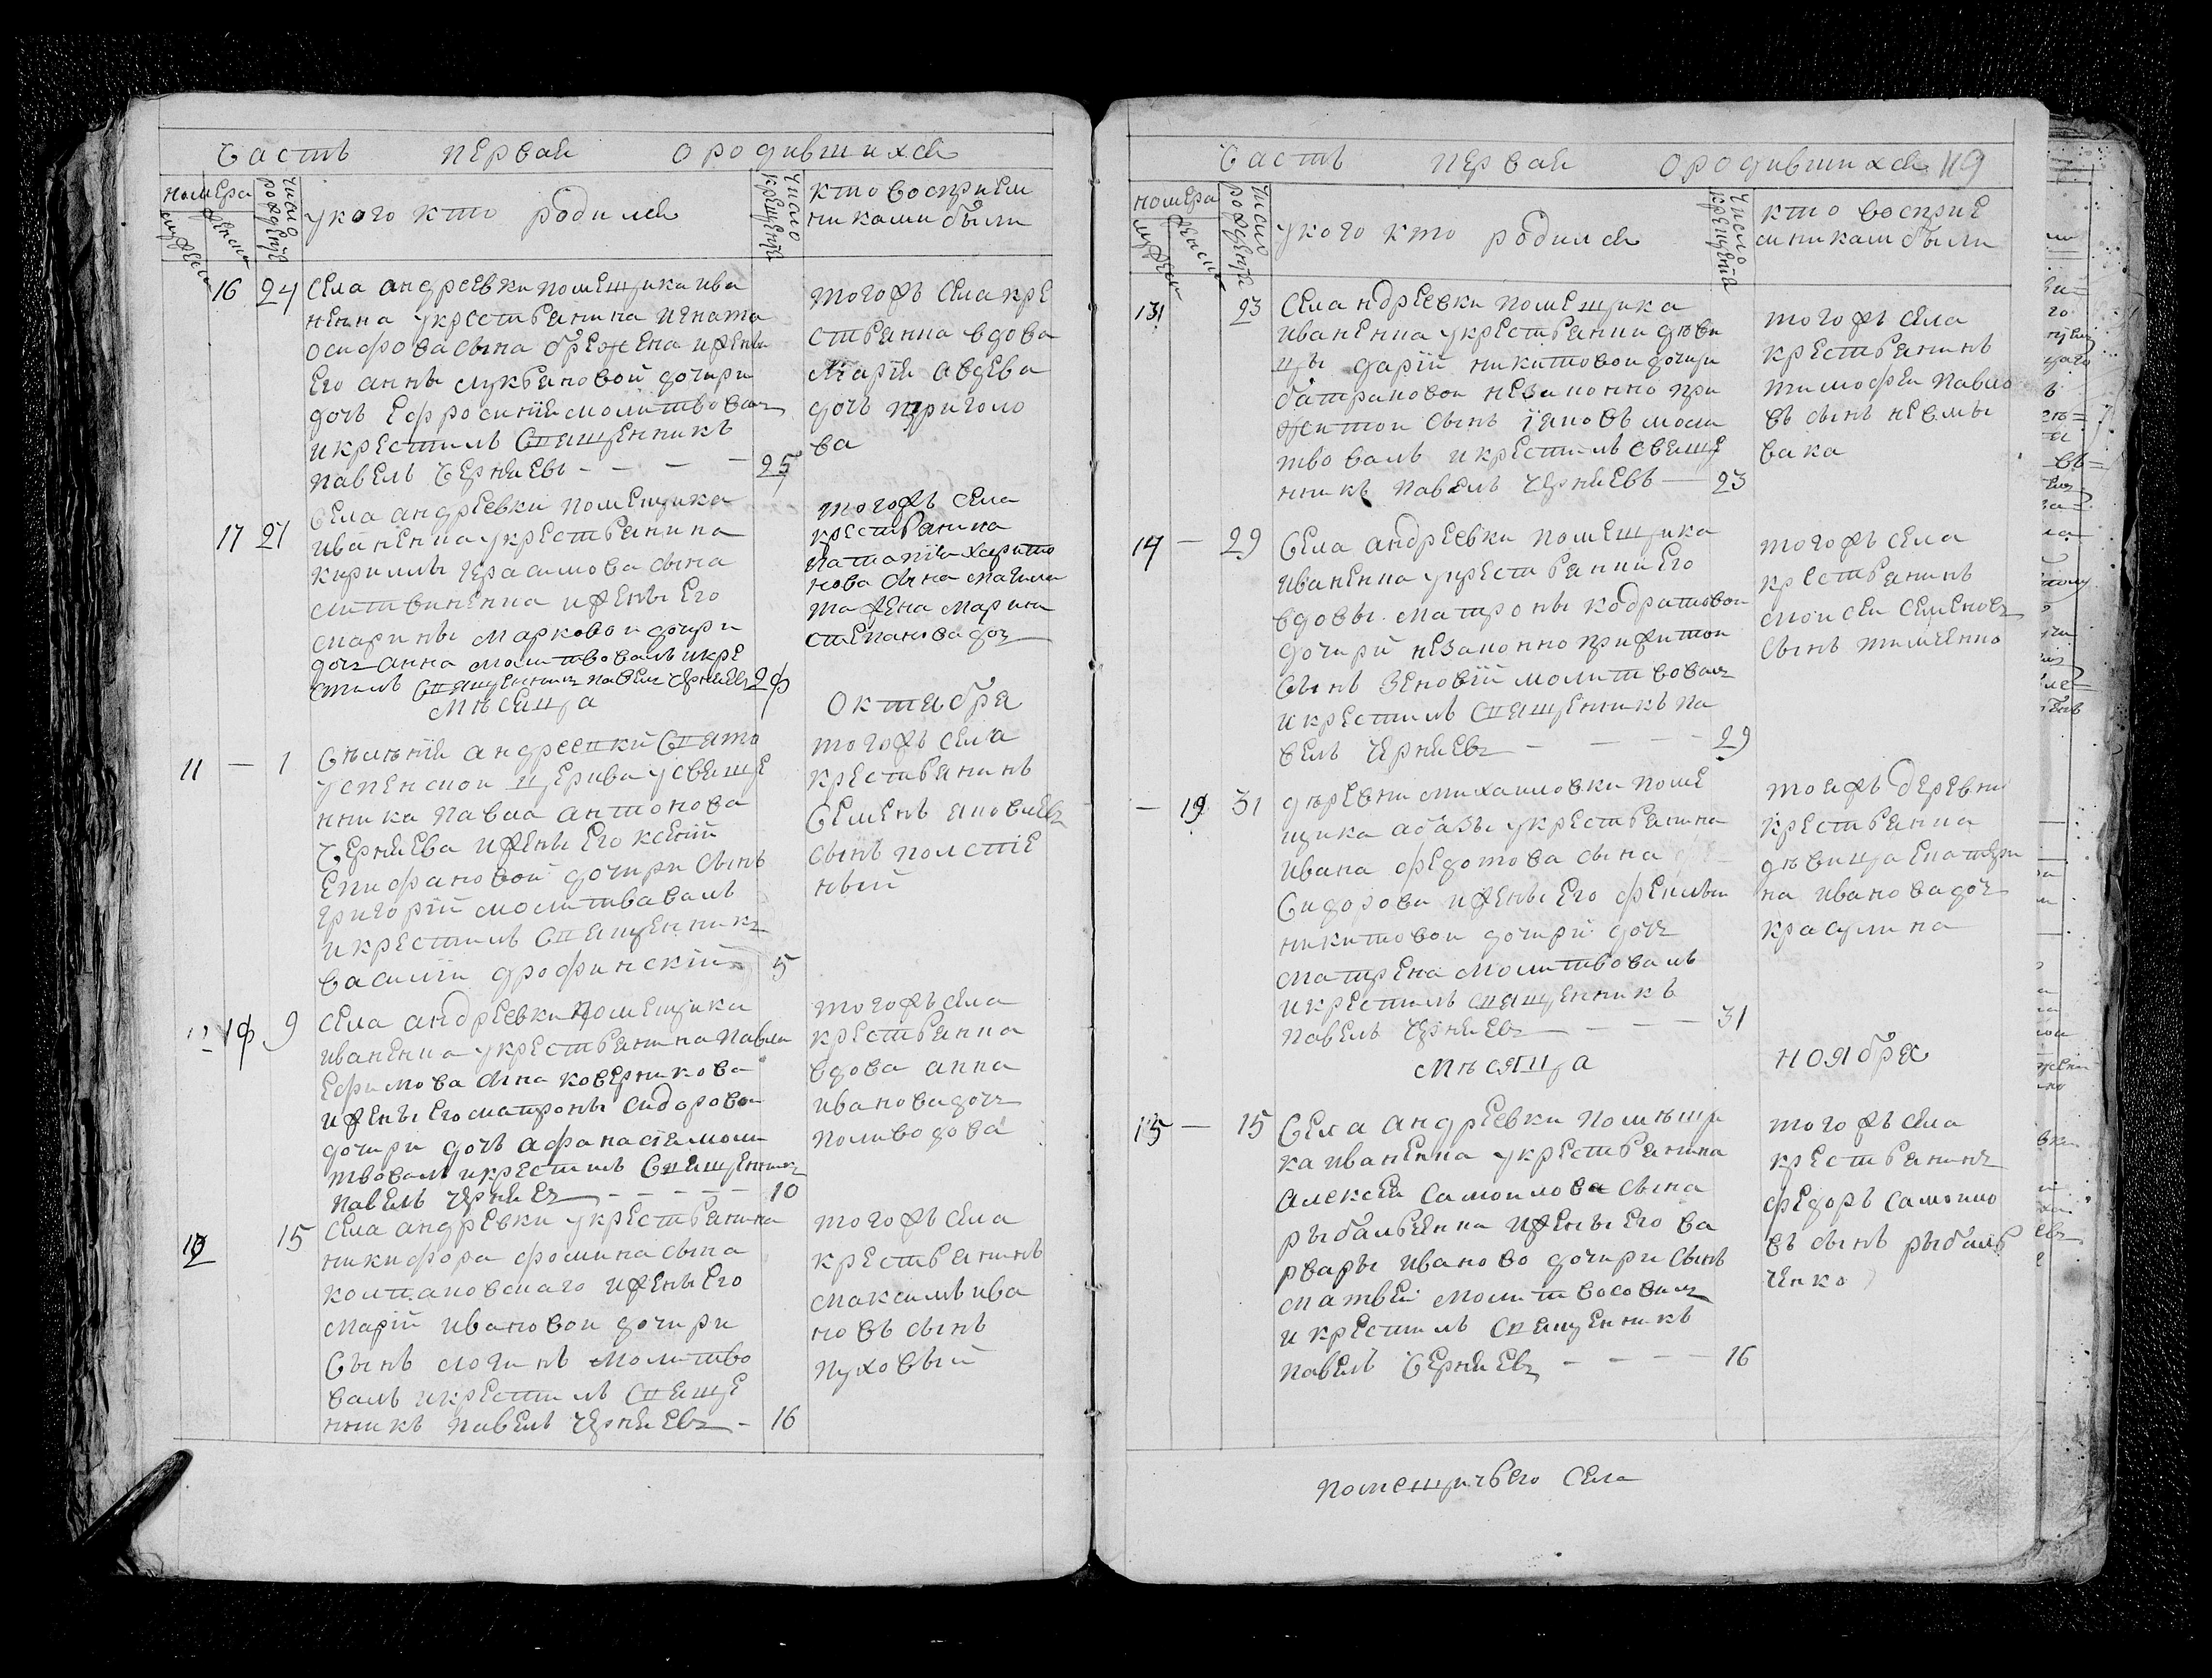 Часть первая ородившихся
номера
мужеска
женска
число рожденїя
укого кто родился
число крещенїя
кто восприем
никами были
16 24 Села андреевки помещика ива
ненка укрестьянина игната
осифова сына бреженя ижены
Его анны лукьяновой дочири
дочь Ефросинїя молитвовалъ
икрестилъ Священникъ
павелъ Черняевъ - - - - 25
тогожъ Села кре
стьянка вдова
Марїя авдева
дочь григоло
ва
17 27 Села андреевки помещика
иваненка укрестьянина
кирилы герасимова сына
литвиненка ижены Его
марины марковой дочири
дочь анна молитвовалъ икре
стилъ Священникъ павелъ Черняевъ 2ф
тогожъ села
крестьянина
харито
нова сына
та жена марина
степанова дочь
Месяца Октября
11 — 1 андреевки Свято
успенской церкви усвяще
нника павла антонова
Черняева ижены Его ксенїи
Епифановой дочири Сынъ
григорїй молитвавалъ
икрестилъ Священникъ
василїй дрофинскїй 5
тогожъ села
крестьянинъ
Семенъ яковлевъ
сынъ
ный
1ф 9 Села андреевки помещика
иваненка укрестьянина павла
Ефимова сына коверникова
ижены Его матроны сидоровой
дочири дочь афанасїя моли
твовалъ икрестилъ Священникъ
павелъ Черняевъ - - - - - 10
тогожъ села
крестьянка
вдова анна
иванова дочь
поливодова
12 15 Села андреевки укрестьянина
никифора фомина сына
колпаковскаго ижены Его
марїи ивановой дочири
Сынъ логинъ молитво
валъ икрестилъ Священ
нникъ павелъ Черняевъ - 16
тогожъ села
крестьянинъ
максимъ ива
новъ сынъ
пуховый
Часть первая ородившихся 119
номера
мужеска
женска
число рожденїя
укого кто родился
число крещенїя
кто восприе
мникам были
131 23 Села ндреевки помещика
иваненка укрестьянки деви
цы дарїи никитовой дочири
батраковой незаконно при
житой сынъ їаковъ моли
твовалъ икрестилъ Свяще
нникъ павелъ Черняевъ — 23
тогожъ села
крестьянинъ
тимофей павло
въ сынъ невлы
вака
14 — 29 Села андреевки помещика
иваненка укрестьянки Его
вдовы матроны кодратовой
дочири незаконно прижитой
Сынъ Зеновїй молитвовалъ
икрестилъ Священникъ па
велъ Черняевъ - - - - 29
тогожъ села
крестьянинъ
моисей Семеновъ
сынъ тимченко
— 19 31 деревни михаиловки поме
щика абазы укрестьянина
ивана федотова сына
Сидорова ижены Его феклы
никитовой дочири дочь
матрена молитвовалъ
икрестилъ Священникъ
павелъ Черняевъ - - - - 31
тояжъ деревни
крестьянка
девица Екатери
на иванова дочь
Месяца ноября
15 — 15 Села андреевки помещи
ка иваненка укрестьянина
алексея самоилова сына
рыбальченка ижены Его ва
рвары иваново дочири Сынъ
матвей
икрестилъ Священникъ
павелъ Черняевъ - - - - 16
тогожъ села
крестьянинъ
федоръ самоило
въ сынъ рыбаль
ченко
помещичьего Села